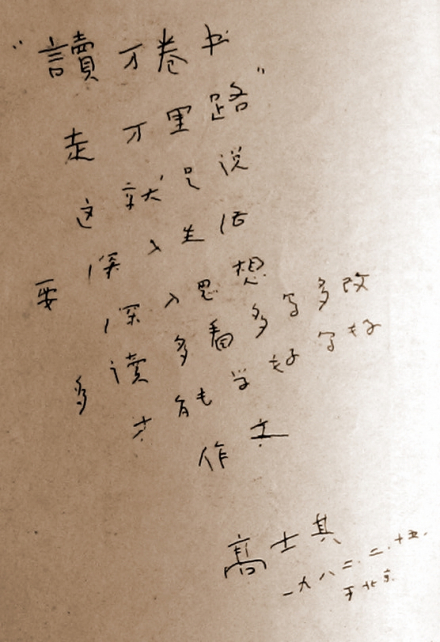 “讀万卷书
走万里路”
这就是说
要深入生活
深入思想
多读多看多写多改
才能学好写好
作文
高士其
一九八二.二.十五.
于北京.